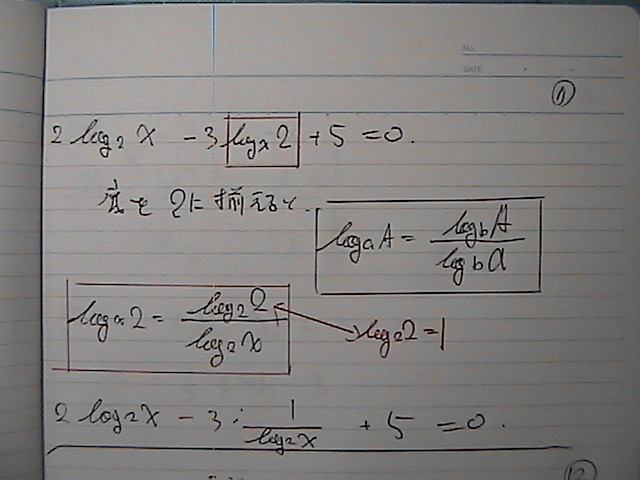 No.
DATE
①
2 log₂ x - 3 logₓ 2 + 5 = 0.
底を2に揃えると.
logₐ A = log_b A / log_b a
logₓ 2 = log₂ 2 / log₂ x
log₂ 2 = 1
2 log₂ x - 3 · 1 / log₂ x + 5 = 0.
⑫